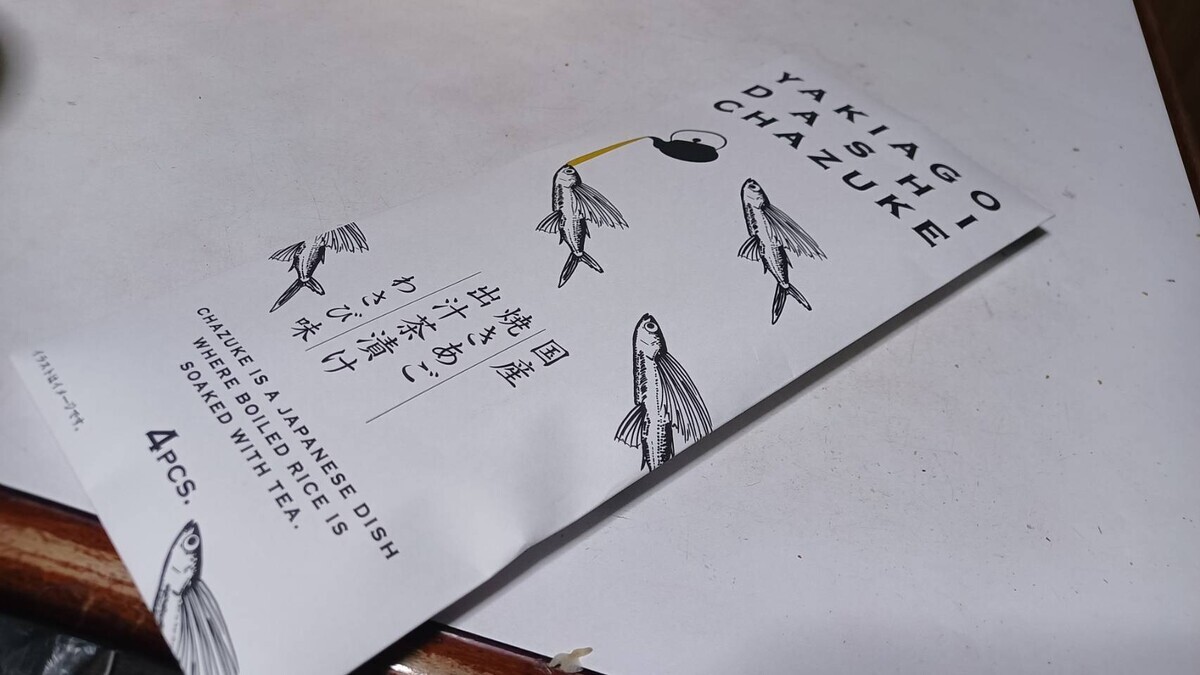 YAKIAGO
DASHI
CHAZUKE
国産
焼きあご
出汁茶漬け
わさび味
CHAZUKE IS A JAPANESE DISH
WHERE BOILED RICE IS
SOAKED WITH TEA.
4PCS.
イラストはイメージです。